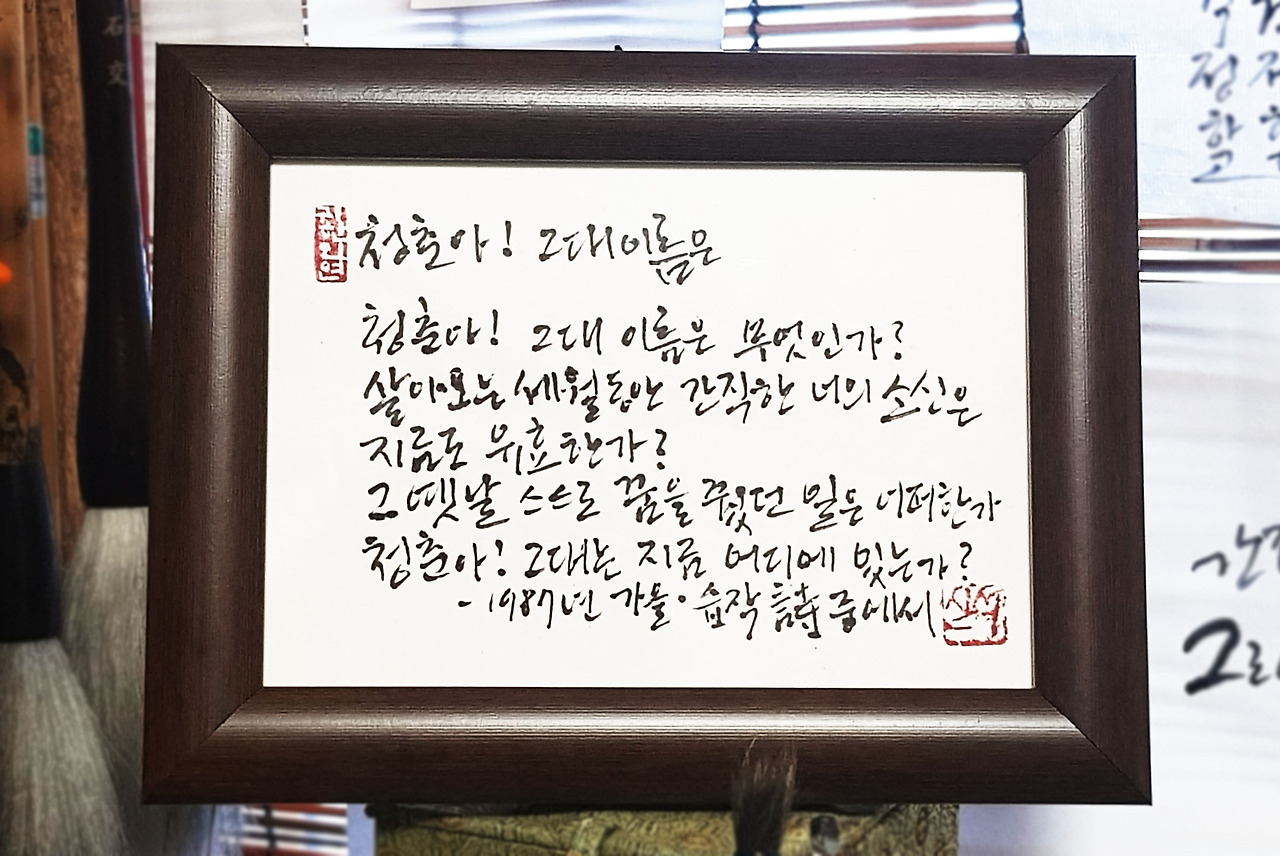 청춘아! 그대 이름은
청춘아! 그대 이름은 무엇인가?
살아오는 세월동안 간직한 너의 소신은
지금도 유효한가?
그 옛날 스스로 꿈을 꾸었던 일은 어떠한가
청춘아! 그대는 지금 어디에 있는가?
- 1987년 가을·습작 詩 중에서
石文
정
항
그